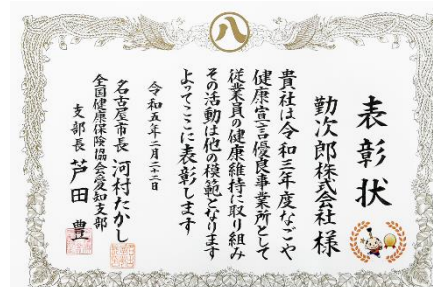 八
表彰状
勤次郎株式会社 様
貴社は令和三年度なごや
健康宣言優良事業所として
従業員の健康維持に取り組み
その活動は他の模範となります
よってここに表彰します
令和五年二月二十二日
名古屋市長 河村たかし
全国健康保険協会愛知支部
支部長 芦田 豊